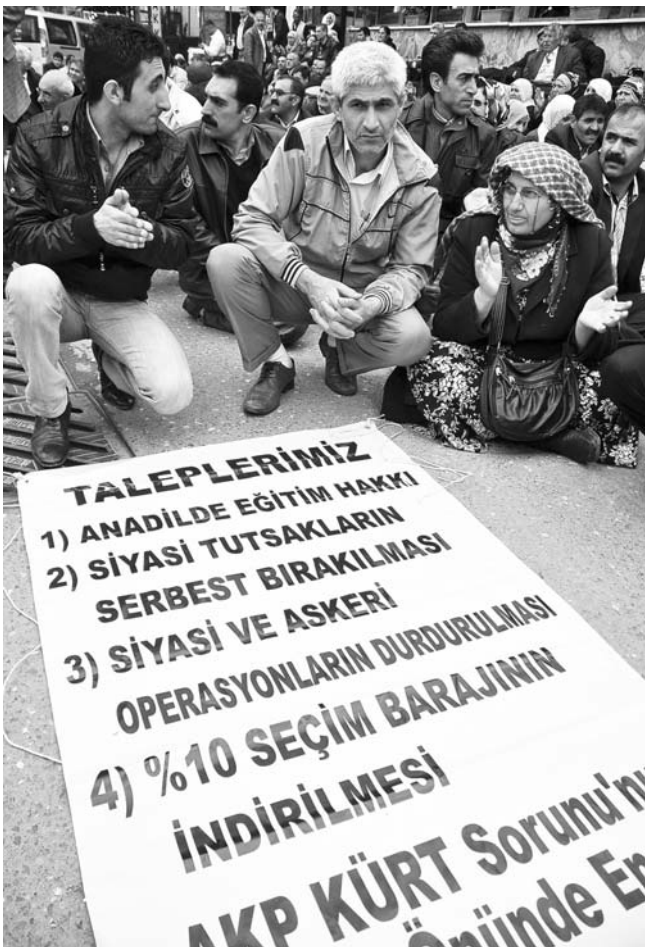 TALEPLERİMİZ
1) ANADİLDE EĞİTİM HAKKI
2) SİYASİ TUTSAKLARIN
SERBEST BIRAKILMASI
3) SİYASİ VE ASKERİ
OPERASYONLARIN DURDURULMASI
4) %10 SEÇİM BARAJININ
İNDİRİLMESİ
AKP KÜRT Sorunu'nu
Önünde